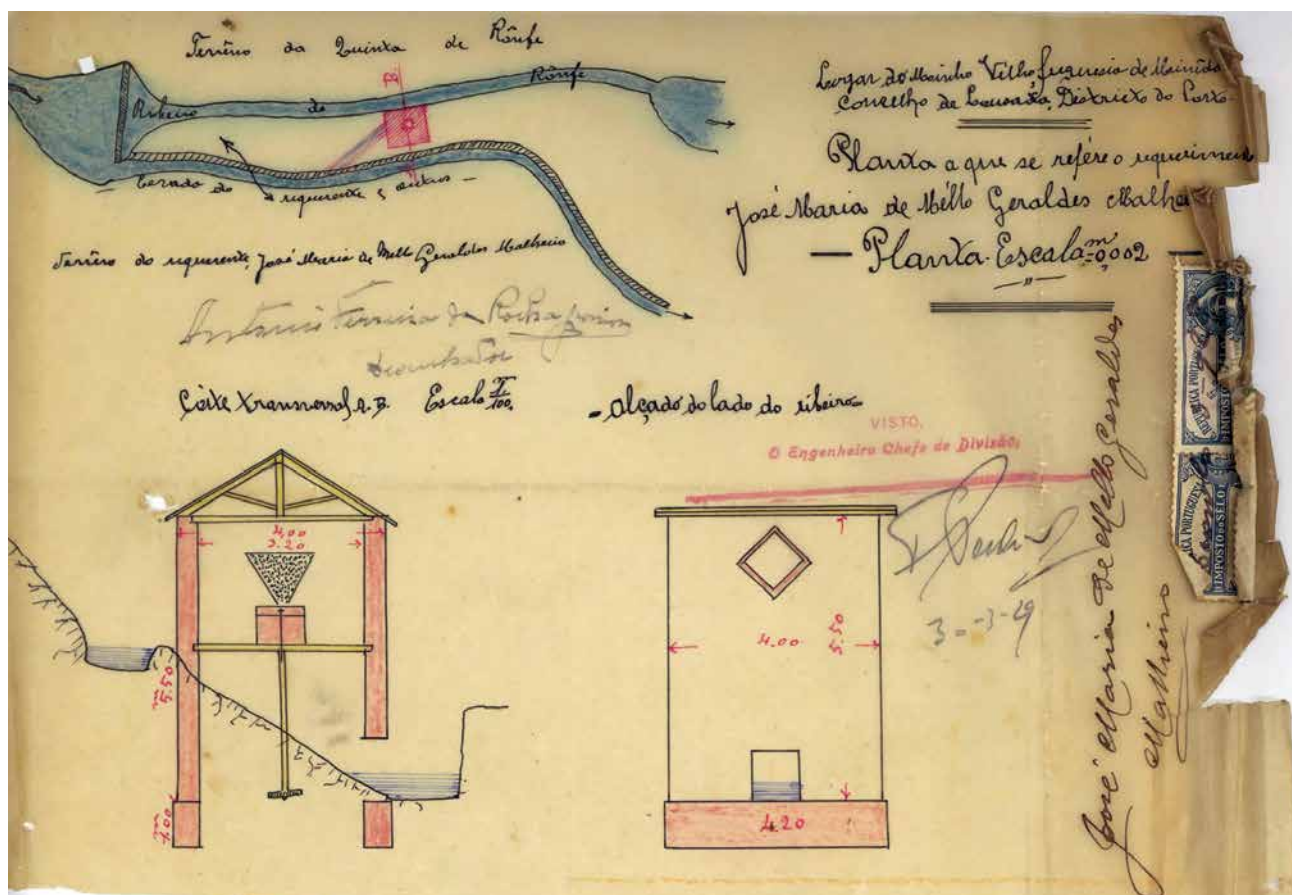 Terrêno da Quinta de Rônfe
B.
Ribeiro de Rônfe
Levada do requerente e outros
Terrêno do requerente, José Maria de Mello Geraldes Malheiro
António Ferreira da Rocha Junior
Lugar do Moinho Vélho, freguesia de Meinêdo
Concelho de Louzada, Districto do Porto
Planta a que se refére o requerimento
José Maria de Méllo Geraldes Malhei
Planta-Escala = 0,002
m
Córte transversal A.B. Escala 1/100,
Alçado do lado do ribeiro
VISTO,
O Engenheiro Chefe de Divisão,
3-3-29
4,00
3.20
5.50
m
1,00
m
4.00
5.50
4.20
José Maria de Mello Geraldes
Malheiro
REPUBLICA PORTUGUESA
IMPOSTO DO SÊLO
REPUBLICA PORTUGUESA
IMPOSTO DO SÊLO